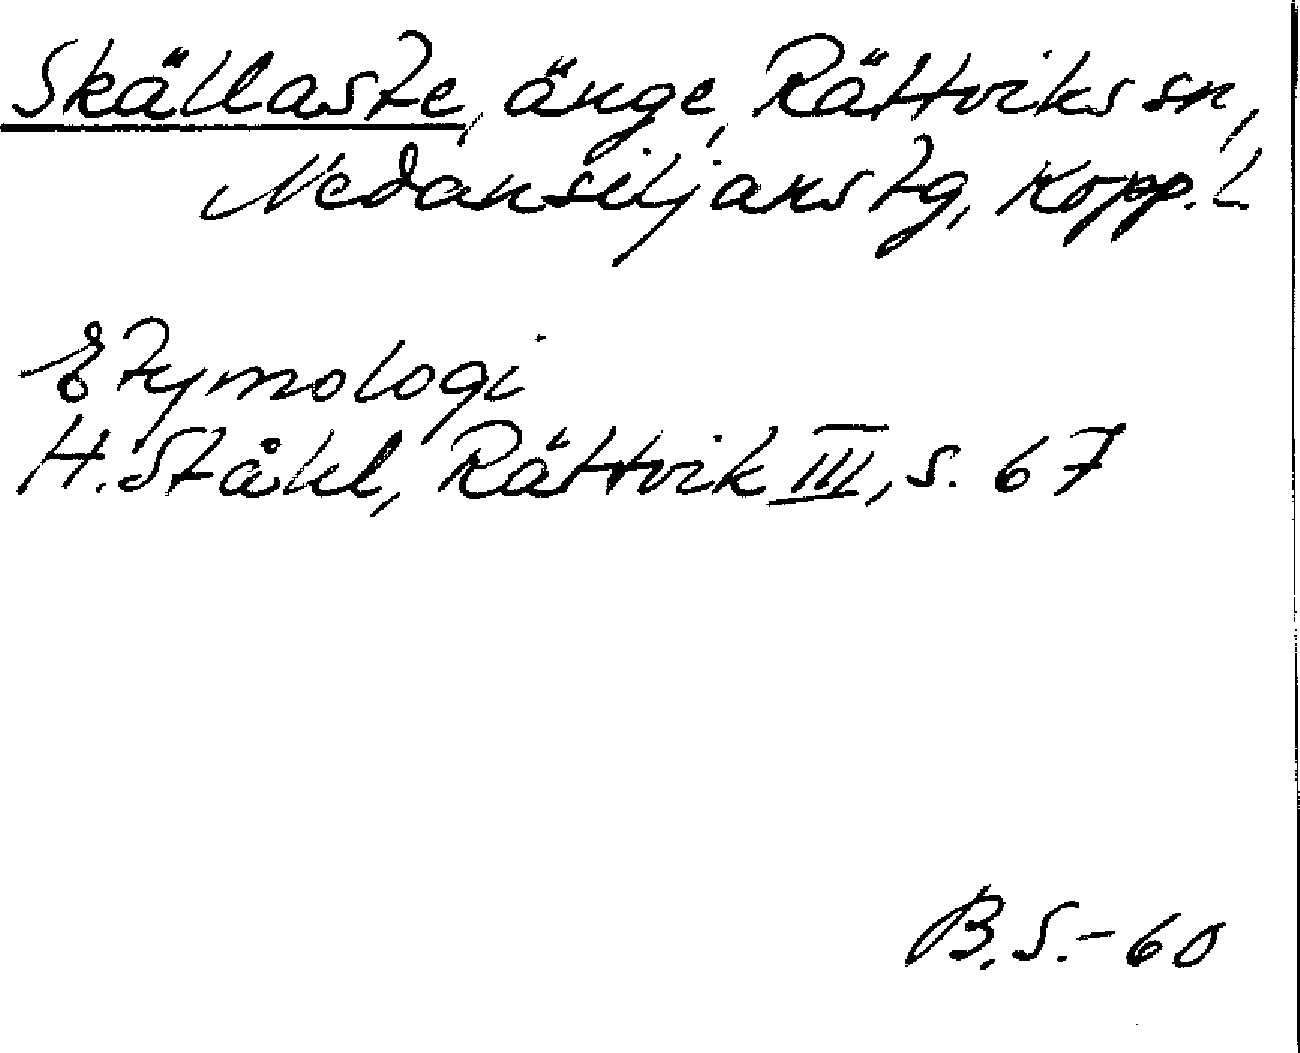 Skällaste, änge, Rättviks sn,
Nedansiljans tg, Kopp. l.
Etymologi
H. Ståhl, Rättvik III, s. 67
B. S. - 60